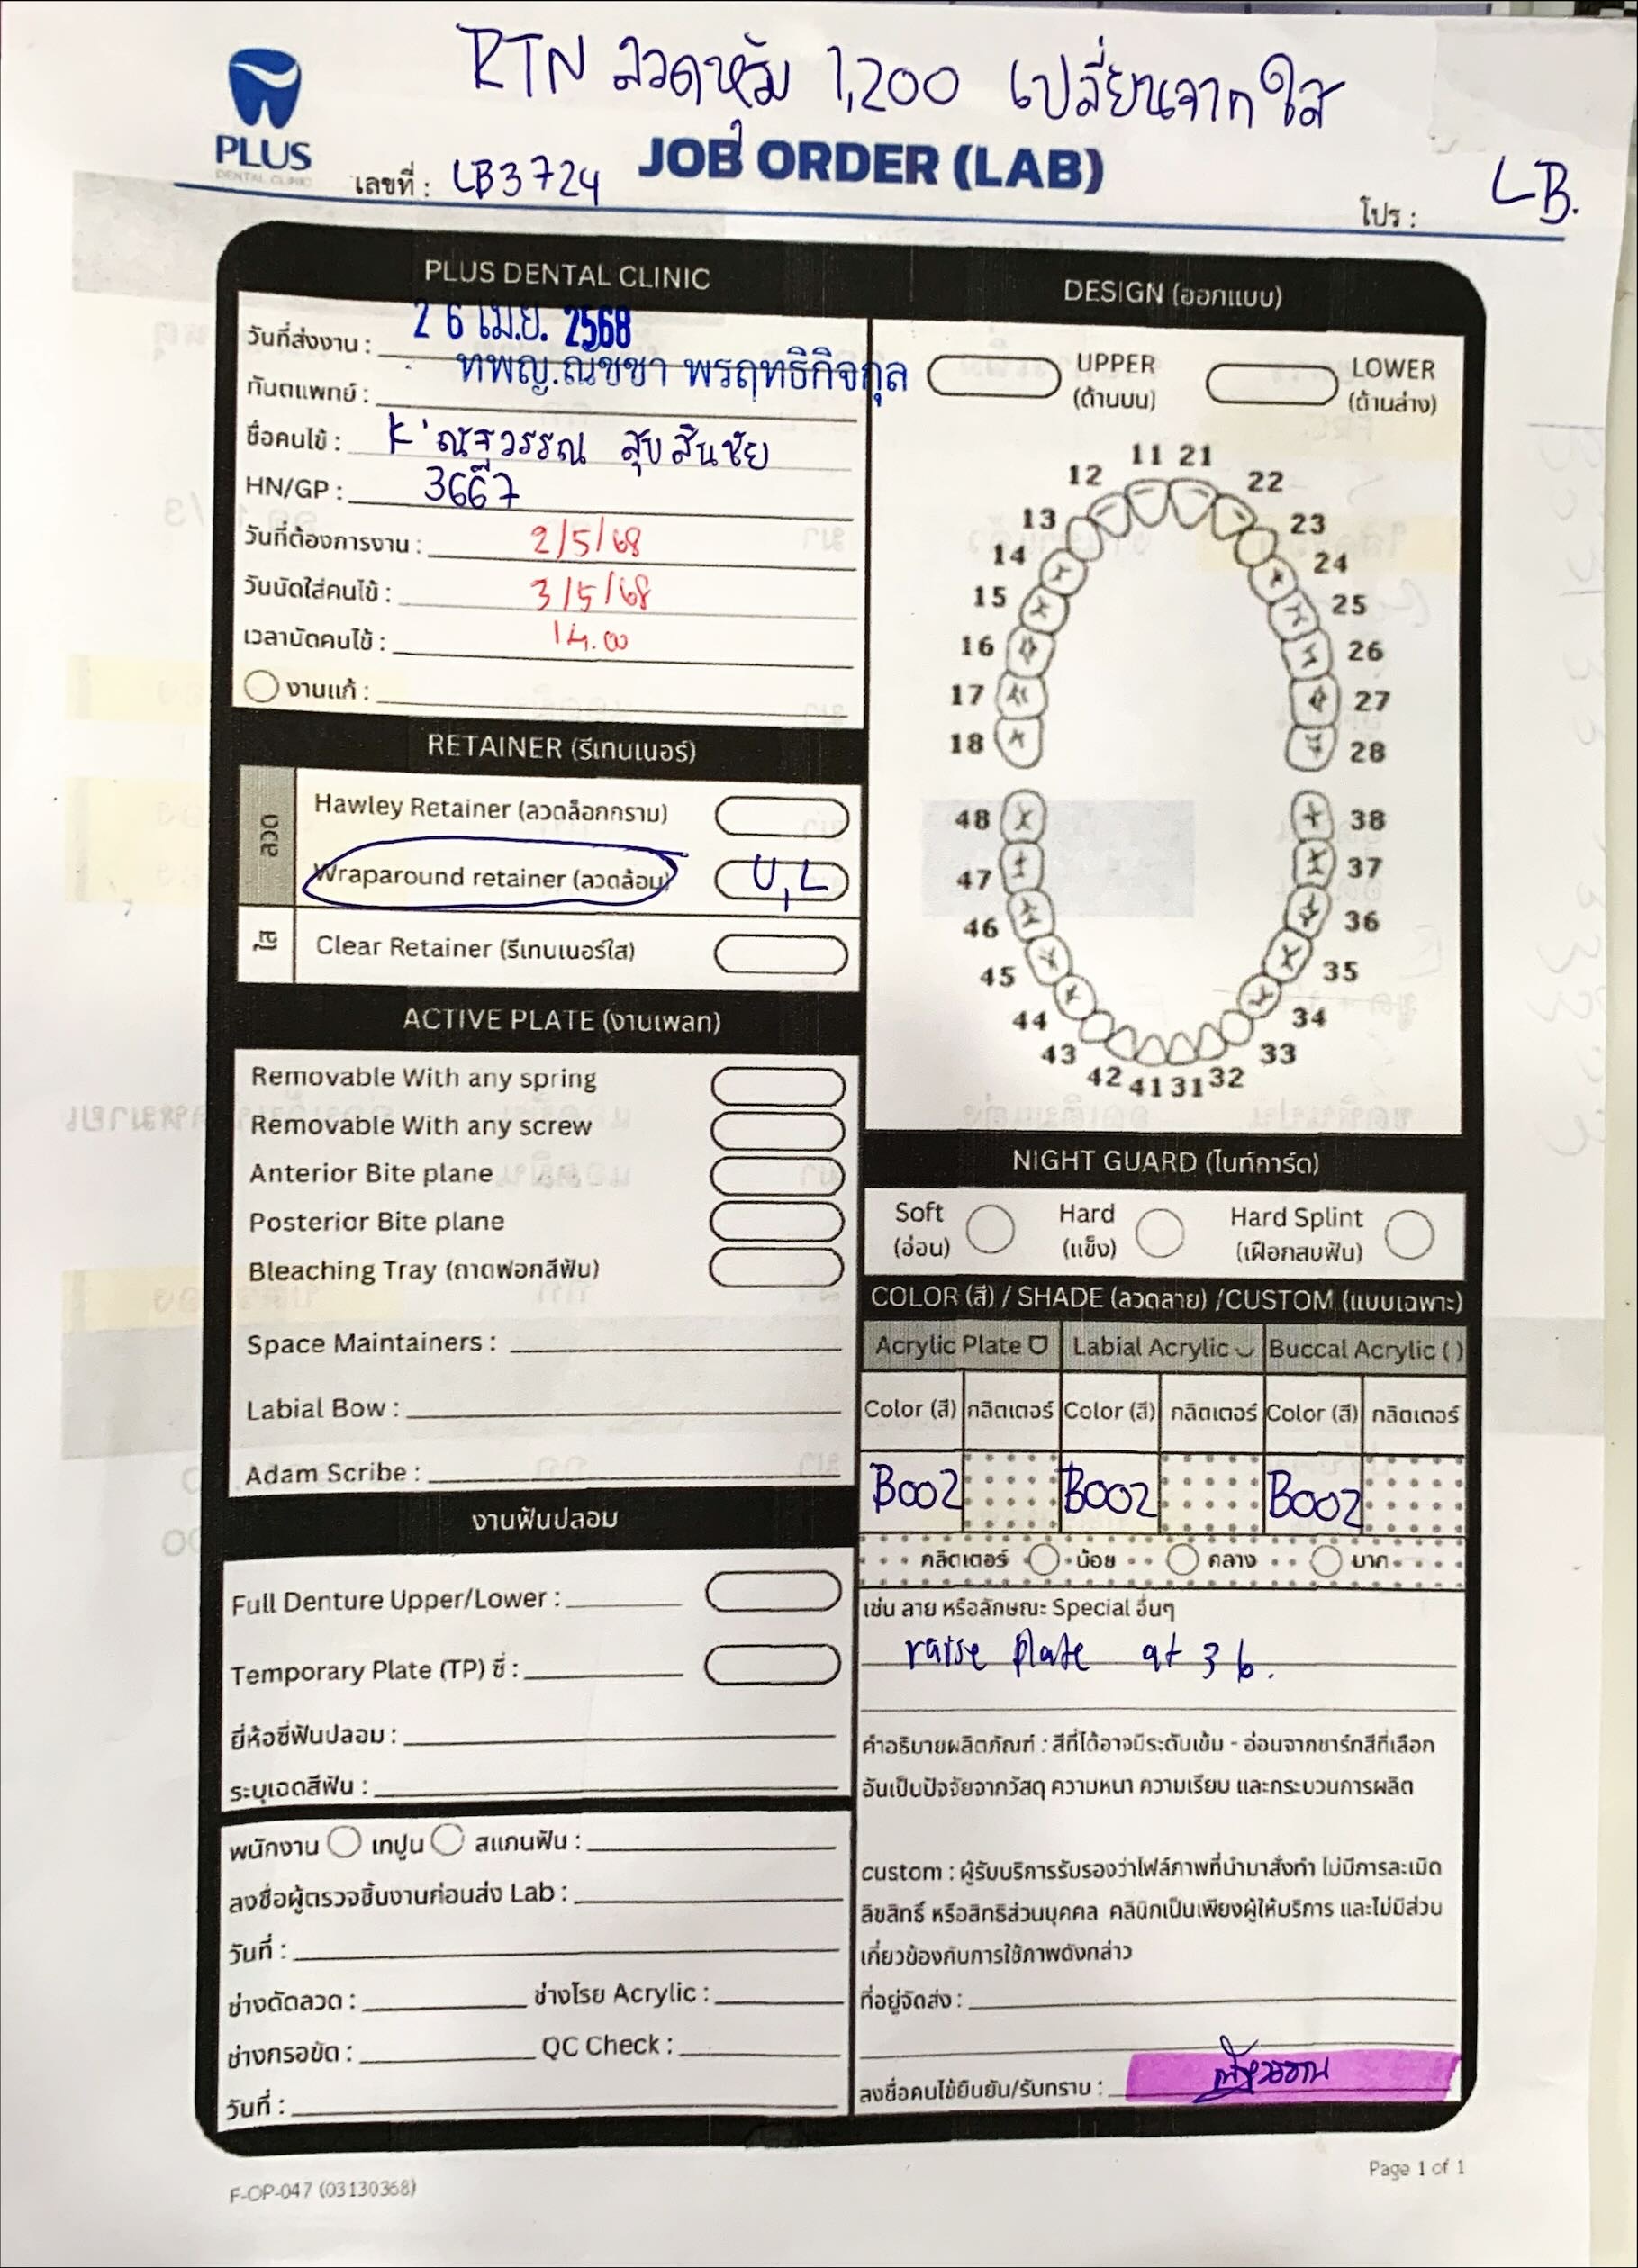 RTN ลวดหุ้ม 1,200 เปลี่ยนจากใส
PLUS
DENTAL CLINIC
JOB ORDER (LAB)
เลขที่ : LB3724
โปร : LB.
PLUS DENTAL CLINIC
วันที่ส่งงาน : 26 เม.ย. 2568
ทันตแพทย์ : ทพญ.ณัชชา พรฤทธิกิจกุล
ชื่อคนไข้ : K'ณัฐวรรณ สุขสินชัย
HN/GP : 3667
วันที่ต้องการงาน : 2/5/68
วันนัดใส่คนไข้ : 3/5/68
เวลานัดคนไข้ : 14.00
งานแก้ :
RETAINER (รีเทนเนอร์)
ลวด
Hawley Retainer (ลวดล็อกกราม)
Wraparound retainer (ลวดล้อม) U, L
ใส
Clear Retainer (รีเทนเนอร์ใส)
ACTIVE PLATE (งานเพลท)
Removable With any spring
Removable With any screw
Anterior Bite plane
Posterior Bite plane
Bleaching Tray (ถาดฟอกสีฟัน)
Space Maintainers :
Labial Bow :
Adam Scribe :
งานฟันปลอม
Full Denture Upper/Lower :
Temporary Plate (TP) ซี่ :
ยี่ห้อซี่ฟันปลอม :
ระบุเฉดสีฟัน :
พนักงาน เทปูน สแกนฟัน :
ลงชื่อผู้ตรวจชิ้นงานก่อนส่ง Lab :
วันที่ :
ช่างดัดลวด : ช่างโรย Acrylic :
ช่างกรอขัด : QC Check :
วันที่ :
DESIGN (ออกแบบ)
UPPER LOWER
(ด้านบน) (ด้านล่าง)
11 21
12 22
13 23
14 24
15 25
16 26
17 27
18 28
48 38
47 37
46 36
45 35
44 34
43 33
42 41 31 32
NIGHT GUARD (ไนท์การ์ด)
Soft Hard Hard Splint
(อ่อน) (แข็ง) (เฝือกสบฟัน)
COLOR (สี) / SHADE (ลวดลาย) /CUSTOM (แบบเฉพาะ)
Acrylic Plate Labial Acrylic Buccal Acrylic ( )
Color (สี) กลิตเตอร์ Color (สี) กลิตเตอร์ Color (สี) กลิตเตอร์
B002 B002 B002
กลิตเตอร์ น้อย กลาง มาก
เช่น ลาย หรือลักษณะ Special อื่นๆ
raise plate at 36.
คำอธิบายผลิตภัณฑ์ : สีที่ได้อาจมีระดับเข้ม - อ่อนจากชาร์ทสีที่เลือก
อันเป็นปัจจัยจากวัสดุ ความหนา ความเรียบ และกระบวนการผลิต
custom : ผู้รับบริการรับรองว่าไฟล์ภาพที่นำมาสั่งทำ ไม่มีการละเมิด
ลิขสิทธิ์ หรือสิทธิส่วนบุคคล คลินิกเป็นเพียงผู้ให้บริการ และไม่มีส่วน
เกี่ยวข้องกับการใช้ภาพดังกล่าว
ที่อยู่จัดส่ง :
ลงชื่อคนไข้ยืนยัน/รับทราบ : ณัฐวรรณ
F-OP-047 (03130368)
Page 1 of 1